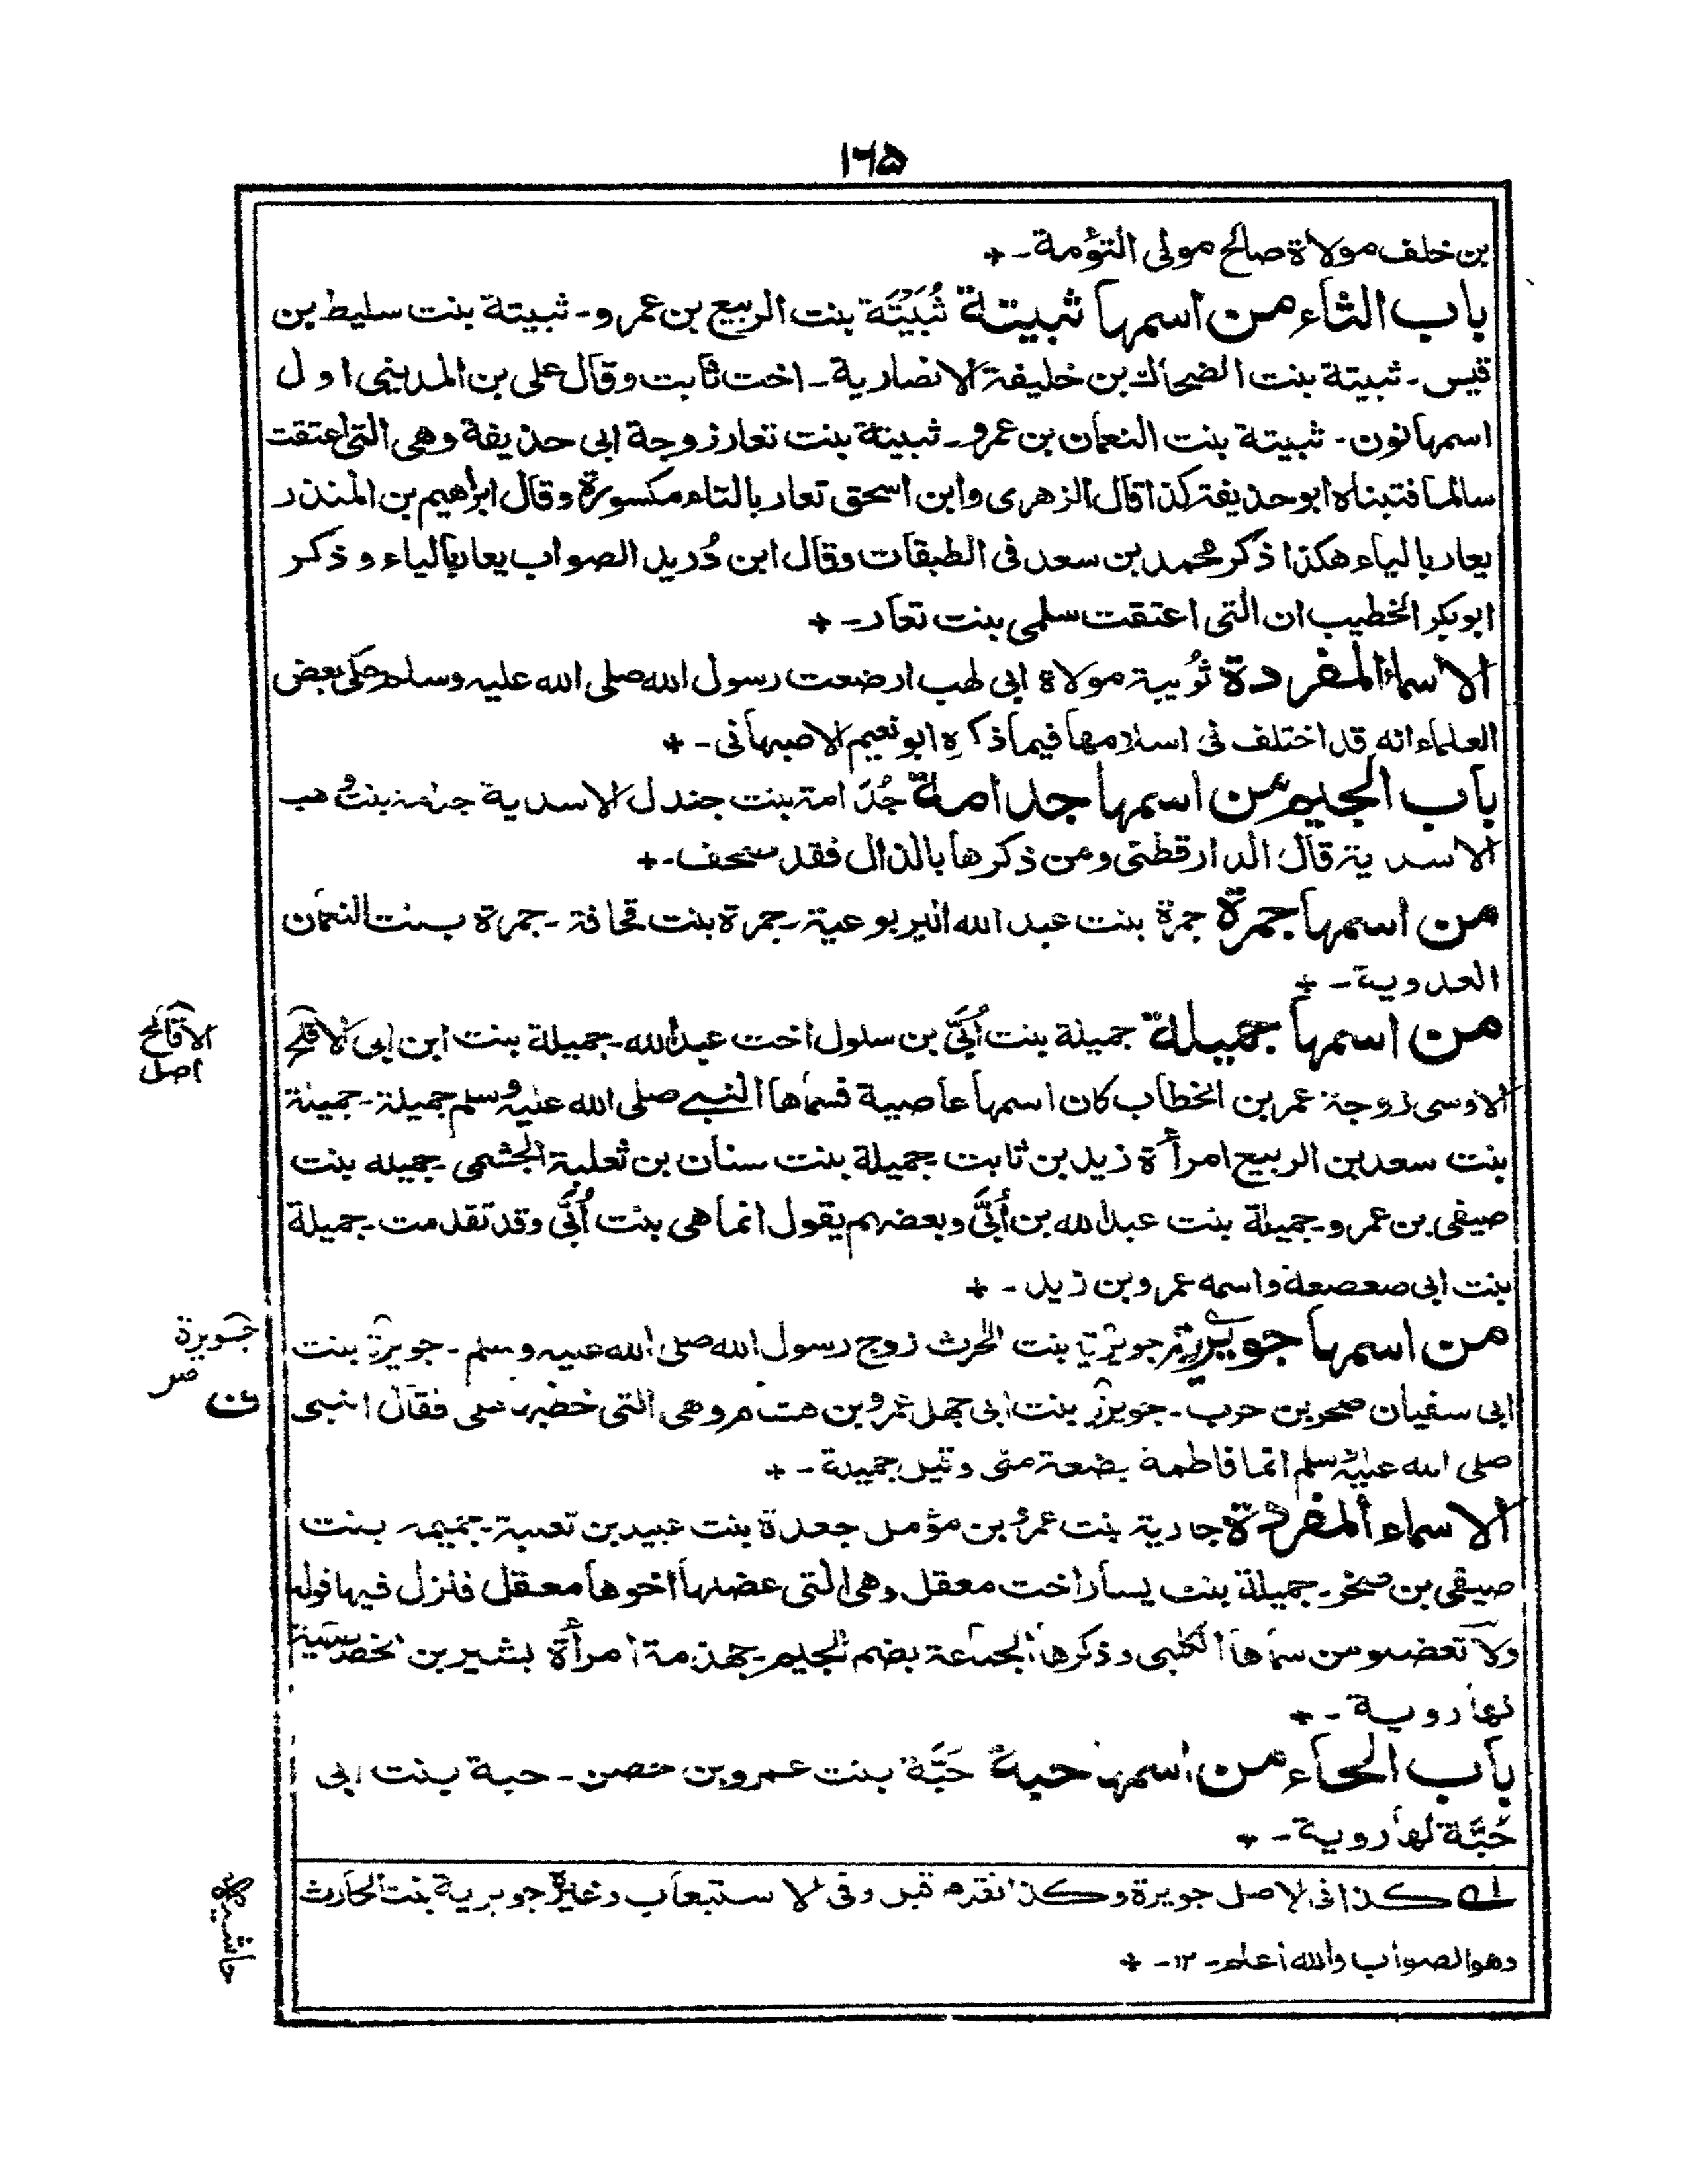 ۱۶۵
بن خلف مولاة صالح مولى التؤمة ـ +
باب الثاء من اسمها ثبيتة ثُبَيْتَة بنت الربيع بن عمرو ـ ثبيتة بنت سليط بن
قيس ـ ثبيتة بنت الضحاك بن خليفة الانصارية ـ اخت ثابت وقال على بن المدينى اول
اسمها نون ـ ثبيتة بنت النعمان بن عمرو ـ ثبيتة بنت تعار زوجة ابى حذيفة وهى التى اعتقت
سالما فتبناه ابو حذيفة كذا قال الزهرى وابن اسحق تعار بالتاء مكسورة وقال ابراهيم بن المنذر
يعار بالياء هكذا ذكر محمد بن سعد فى الطبقات وقال ابن دُريد الصواب يعار بالياء و ذكر
ابوبكر الخطيب ان التى اعتقت سلمى بنت تعار ـ +
الاسماء المفردة ثُويبة مولاة ابى لهب ارضعت رسول الله صلى الله عليه وسلم حكى بعض
العلماء انه قد اختلف فى اسلامها فيما ذكره ابو نعيم الاصبهانى ـ +
باب الجيم من اسمها جدامة جُدَامة بنت جندل الاسدية جدامة بنت وهب
الاسدية قال الدارقطنى ومن ذكرها بالذال فقد صحف ـ +
من اسمها جمرة جمرة بنت عبد الله اليربوعية ـ جمرة بنت قحافة ـ جمرة بنت النعمان
العدوية ـ +
من اسمها جميلة جميلة بنت أُبَىّ بن سلول اخت عبد الله ـ جميلة بنت ابن ابى الاقلح
الاقالح
اصل
الاوسى زوجة عمر بن الخطاب كان اسمها عاصية فسماها النبى صلى الله عليه وسلم جميلة ـ جميلة
بنت سعد بن الربيع امرأة زيد بن ثابت جميلة بنت سنان بن ثعلبة الجشمى ـ جميله بنت
صيفى بن عمرو ـ جميلة بنت عبد الله بن أُبَىّ وبعضهم يقول انما هى بنت أُبَىّ وقد تقدمت ـ جميلة
بنت ابى صعصعة واسمه عمرو بن زيد ـ +
من اسمها جويرية جويرية بنت الحرث زوج رسول الله صلى الله عليه وسلم ـ جويرة بنت
جويرة
ابى سفيان صخر بن حرب ـ جويرة بنت ابى جهل عمرو بن هشام وهى التى خطبها على فقال النبى
صلى الله عليه وسلم انما فاطمة بضعة منى وقيل جميلة ـ +
الاسماء المفردة جارية بنت عمرو بن مؤمل جعدة بنت عبيد بن ثعلبة ـ بنت
صيفى بن صخر ـ جميلة بنت يسار اخت معقل وهى التى عضلها اخوها معقل فنزل فيها قوله
ولا تعضلو من سماها الكلبى وذكرها الجماعة بضم الجيم ـ جهذمة امرأة بشير بن الخصاصية
لها روية ـ +
باب الحاء من اسمها حبة حَبَّة بنت عمرو بن حصن ـ حبة بنت ابى
حَبَّة لها روية ـ +
له كذا فى الاصل جويرة وكذا تقدم قبل وفى الاستيعاب وغيره جويرية بنت الحارث
وهو الصواب والله اعلم ـ ۱۲ ـ +
حاشيه